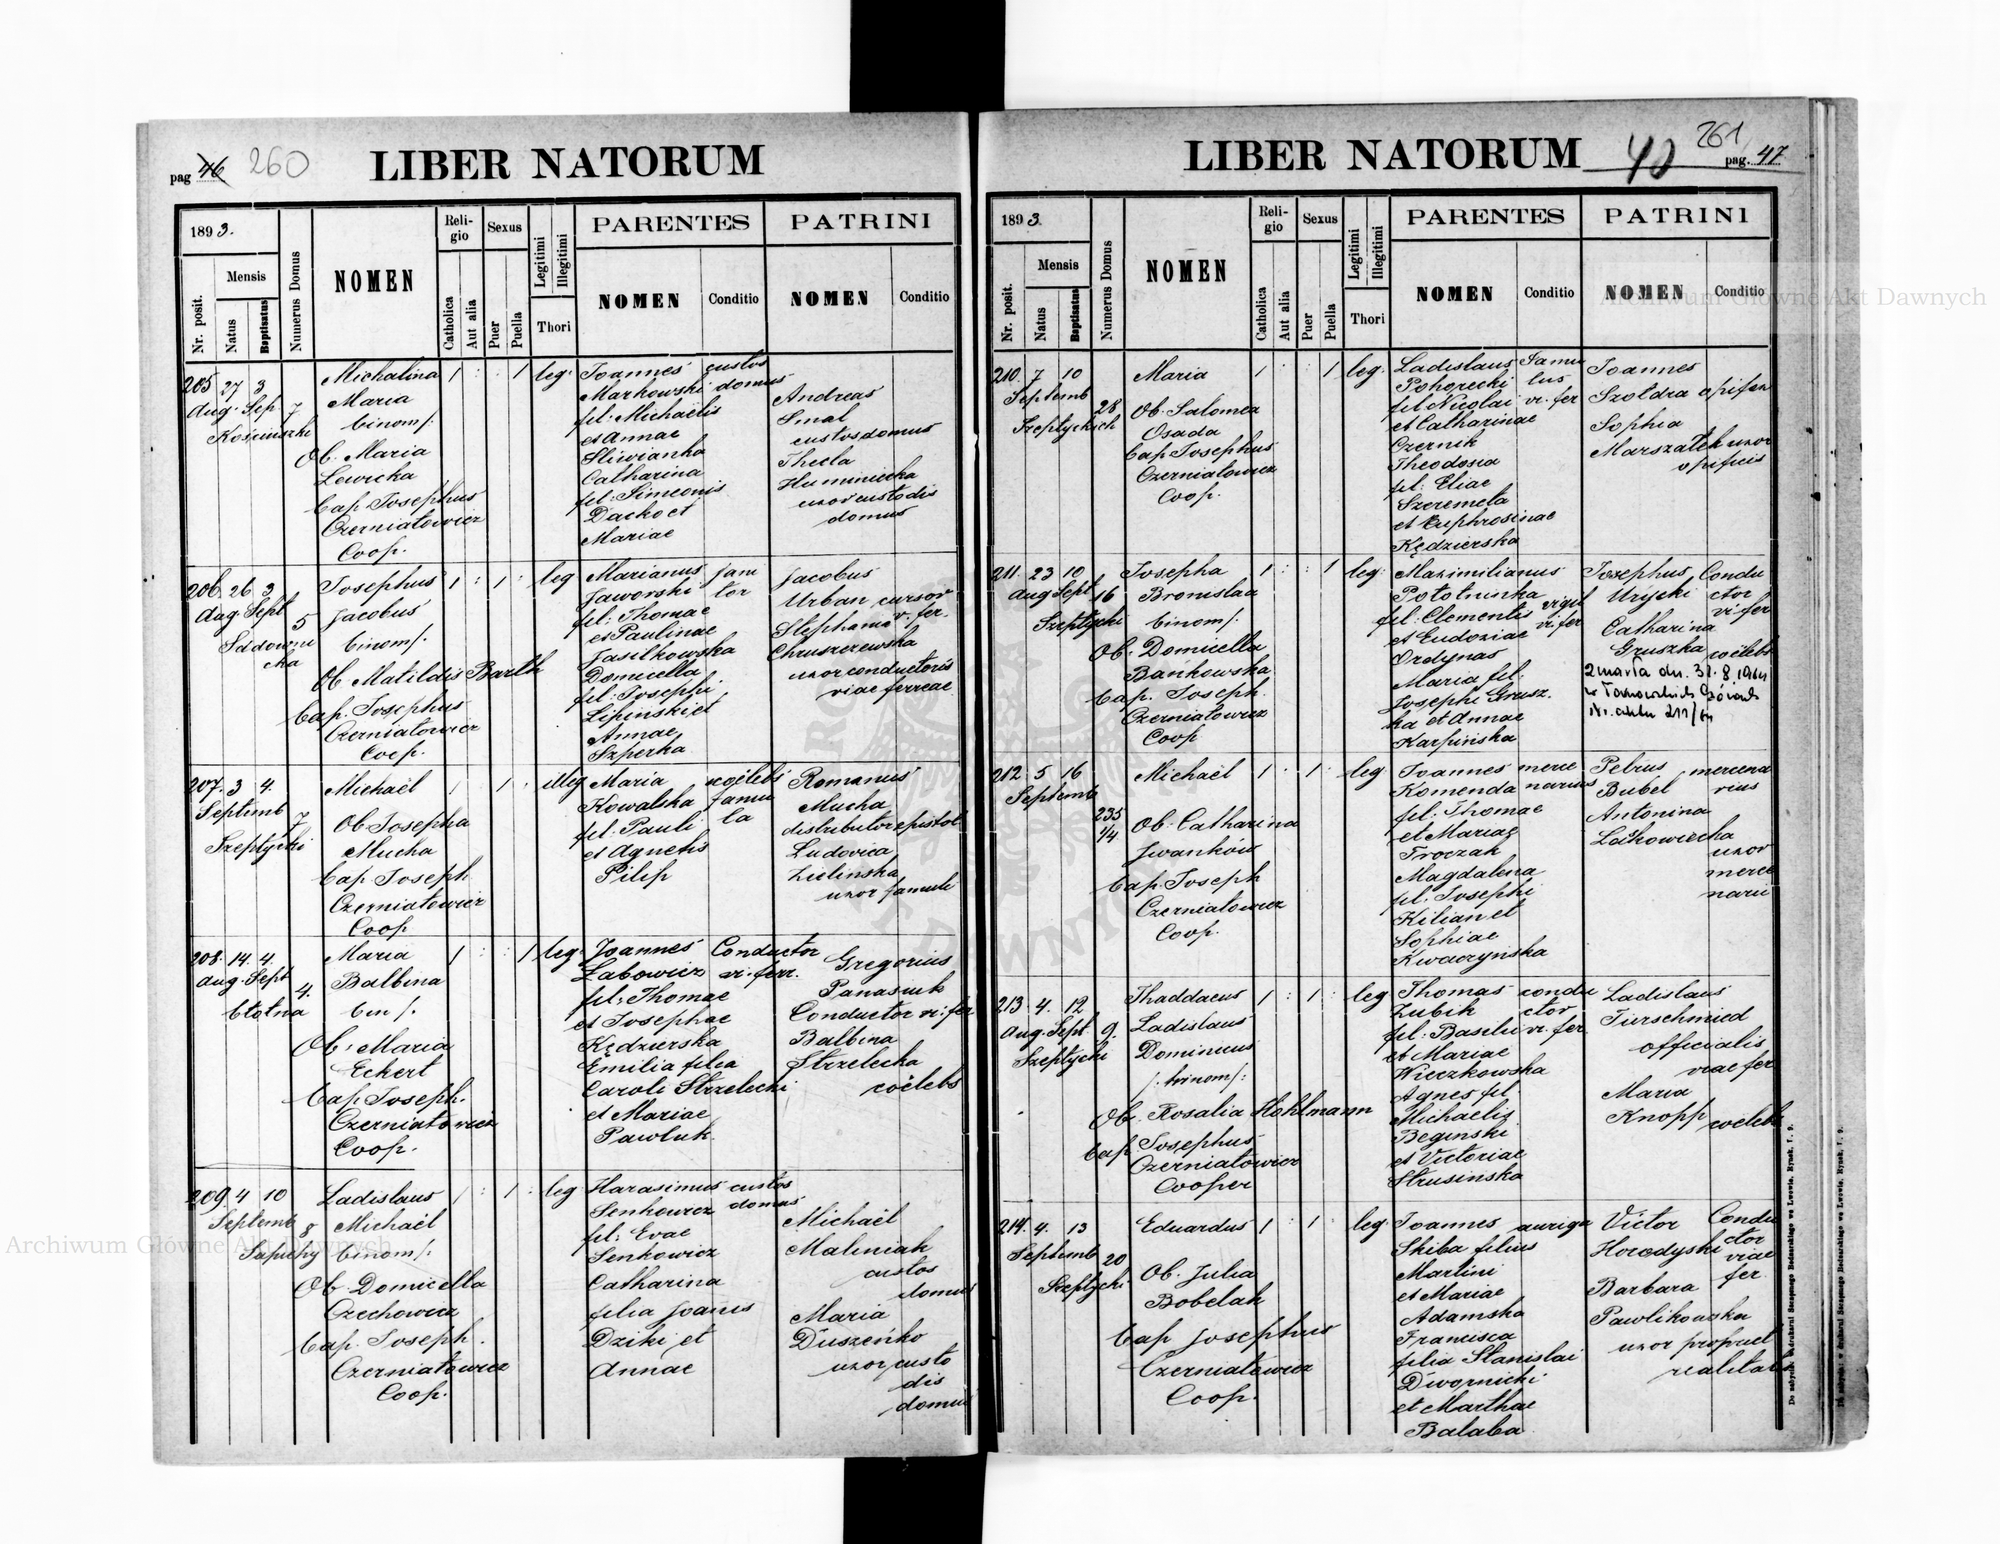 pag 46 260
LIBER NATORUM
1893.
Mensis
Nr. posit.
Natus
Baptisatus
Numerus Domus
NOMEN
Religio
Catholica
Aut alia
Sexus
Puer
Puella
Legitimi
Illegitimi
Thori
PARENTES
NOMEN
Conditio
PATRINI
NOMEN
Conditio
205 27 3
Aug. Sep. 7
Kościuszki
Michalina
Maria
binom/:
Ob. Maria
Lewicka
Bap. Josephus
Czerniatowicz
Coop.
1 : : 1 leg.
Joannes custos
Markowski domus
fil: Michaelis
et Annae
Sliwianka
Catharina
fil: Simeonis
Dacko et
Mariae
Andreas
Smal
custos domus
Thecla
Huminiecka
uxor custodis
domus
206. 26 3
Aug Sept 5
Sadowni
cka
Josephus
Jacobus
binom/.
Ob Matildis Barth
Bap. Josephus
Czerniatowicz
Coop.
1 : 1 : leg
Marianus jani
Jaworski tor
fil: Thomae
et Paulinae
Jasilkowska
Domicella
fil: Josephi
Lipinski et
Annae
Szperka
Jacobus
Urban cursor
Stephania v. fer.
Chruszczewska
uxor conductoris
viae ferreae
207. 3 4.
Septemb 7
Szeptycki
Michaël
Ob Josepha
Mucha
Bap Joseph
Czerniatowicz
Coop
1 : 1 : illeg
Maria coëlebs
Kowalska famu
fil. Pauli la
et Agnetis
Pilip
Romanus
Mucha
distributor epistol
Ludovica
Zielinska
uxor famuli
208. 14. 4.
Aug. Sept 4.
Błotna
Maria
Balbina
bin/.
Ob. Maria
Eckert
Bap Joseph.
Czerniatowicz
Coop.
1 : : 1 leg.
Joannes Conductor
Labowicz vi. ferr.
fil: Thomae
et Josephae
Kędzierska
Emilia filia
Caroli Strzelecki
et Mariae
Pawluk.
Gregorius
Panasiuk
Conductor vi. fer
Balbina
Strzelecka
coëlebs
209. 4 10
Septemb 8
Sapiehy
Ladislaus
Michaël
binom/:
Ob. Domicella
Czechowicz
Bap. Joseph.
Czerniatowicz
Coop.
1 : 1 : leg
Harasimus custos
Senkowicz domus
fil: Evae
Senkowicz
Catharina
filia Joanis
Dziki et
Annae
Michaël
Maleniak
custos
domus
Maria
Duszeńko
uxor custo
dis
domus
LIBER NATORUM
40
261
pag. 47
1893.
Mensis
Nr. posit.
Natus
Baptisatus
Numerus Domus
NOMEN
Religio
Catholica
Aut alia
Sexus
Puer
Puella
Legitimi
Illegitimi
Thori
PARENTES
NOMEN
Conditio
PATRINI
NOMEN
Conditio
210. 7 10
Septemb 28
Szeptyckich
Maria
Ob. Salomea
Osada
Bap Josephus
Czerniatowicz
Coop.
1 : : 1 leg.
Ladislaus Famu
Pohorecki lus
fil Nicolai vi. fer
et Catharinae
Czernik
Theodosia
fil: Eliae
Szeremeta
et Euphrosinae
Kędzierska
Joannes
Szoldra opifex
Sophia
Marszałek uxor
opificis
211. 23 10
Aug Sept 16
Szeptycki
Josepha
Bronislaa
binom/.
Ob. Domicella
Bankowska
Bap. Joseph.
Czerniatowicz
Coop
1 : : 1 leg.
Maximilianus
Potolninka
fil: Clementis vigil
et Eudoxiae vi fer
Ordynas
Maria fil.
Josephi Grusz.
ka et Annae
Karpińska
Josephus Condu
Urycki ctor
vi. fer
Catharina
Gruszka coëlebs
Zmarła dn. 31.8.1964
w Tarnowskich Górach
Nr. aktu 211/64
212. 5 16
Septemb
235
1/4
Michaël
Ob. Catharina
Jwanków
Bap. Joseph
Czerniatowicz
Coop.
1 : 1 : leg
Joannes merce
Komenda narius
fil: Thomae
et Mariae
Troczak
Magdalena
fil. Josephi
Kilian et
Sophiae
Kwaczynska
Petrus mercena
Bubel rius
Antonina
Laskowiecka
uxor
merce
narii
213. 4. 12
Aug. Sept 9.
Szeptycki
Thaddaeus
Ladislaus
Dominicus
/. trinom/:
Ob. Rosalia Hohlmann
Bap Josephus
Czerniatowicz
Cooper
1 : 1 : leg
Thomas condu
Zubik ctor
fil: Basilii vi. fer
et Mariae
Wieczkowska
Agnes fil.
Michaelis
Beginski
et Victoriae
Strusinska
Ladislaus
Tierschmied
officialis
viae fer
Maria
Knopp coëlebs
214. 4. 13
Septemb 20
Szeptycki
Eduardus
Ob. Julia
Bobelak
Bap Josephus
Czerniatowicz
Coop.
1 : 1 : leg.
Joannes auriga
Skiba filius
Martini
et Mariae
Adamska
Francisca
filia Stanislai
Dwornicki
et Marthae
Balaba
Victor Condu
Horodyski ctor
viae
fer.
Barbara
Pawlikowska
uxor propriet
realitat
Archiwum Główne Akt Dawnych
Archiwum Główne Akt Dawnych